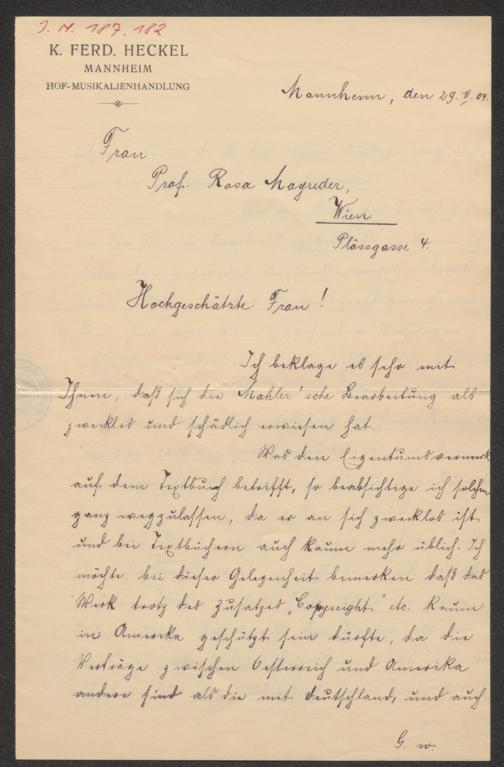 J. N. 187.182
K. FERD. HECKEL
MANNHEIM
HOF-MUSIKALIENHANDLUNG
Mannheim, den 29. VI. 04.
Frau
Prof. Rosa Mayreder,
Wien
Plössgasse 4.
Hochgeschätzte Frau!
Ich beklage es sehr mit
Ihnen, daß sich die Mahler'sche Bearbeitung als
zwecklos und schädlich erwiesen hat.
Was den Eigentumsvermerk
auf dem Textbuch betrifft, so beabsichtige ich solchen
ganz wegzulassen, da er an sich zwecklos ist
und bei Textbüchern auch kaum mehr üblich. Ich
möchte bei dieser Gelegenheit bemerken daß das
Werk trotz des Zusatzes „Copyreight" etc. kaum
in Amerika geschützt sein dürfte, da die
Verträge zwischen Oesterreich und Amerika
andere sind als die mit Deutschland, und auch
G. w.